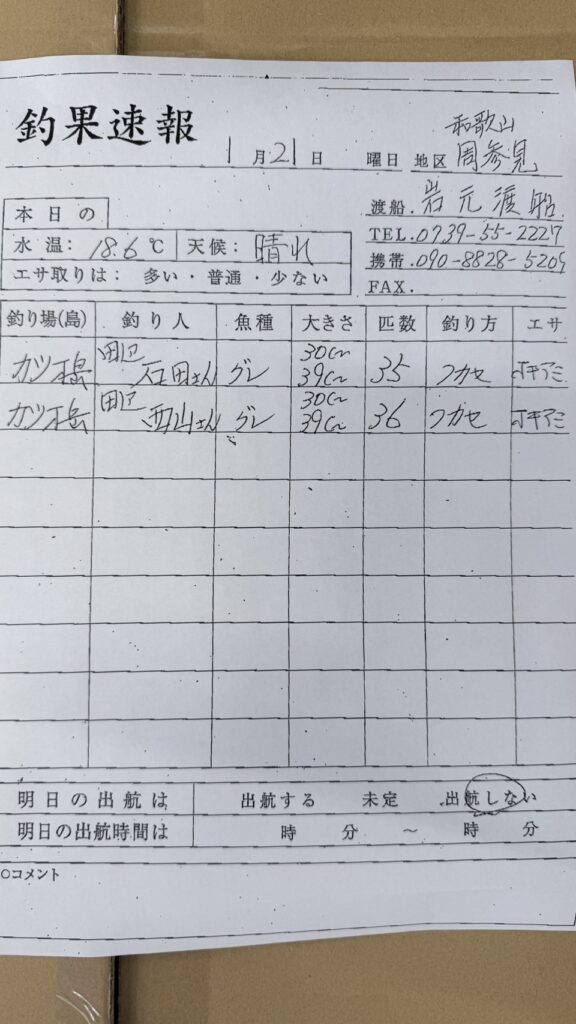 釣果速報
1月21日 曜日 地区 和歌山 周参見
渡船. 岩元渡船
本日の
TEL.0739-55-2227
水温: 18.6℃ 天候: 晴れ
携帯.090-8828-5209
エサ取りは: 多い・普通・少ない
FAX.
釣り場(島) 釣り人 魚種 大きさ 匹数 釣り方 エサ
カツ島 田辺 石田さん グレ 30cm 39cm 35 フカセ オキアミ
カツ島 田辺 西山さん グレ 30cm 39cm 36 フカセ オキアミ
明日の出航は 出航する 未定 出航しない
明日の出航時間は 時 分 ~ 時 分
○コメント